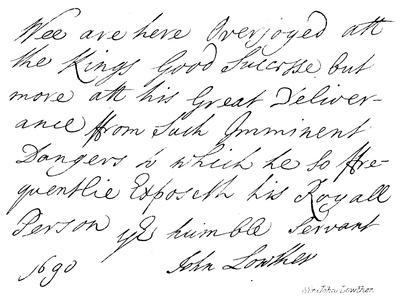 Wee are here Overjoyed att
the Kings Good Successe but
more att his Great Deliver-
ance ffrom Such Imminent
Dangers to which he So ffre-
quentlie Exposeth his Royall
Person yr humble Servant
1690 John Lowther
Sir John Lowther.